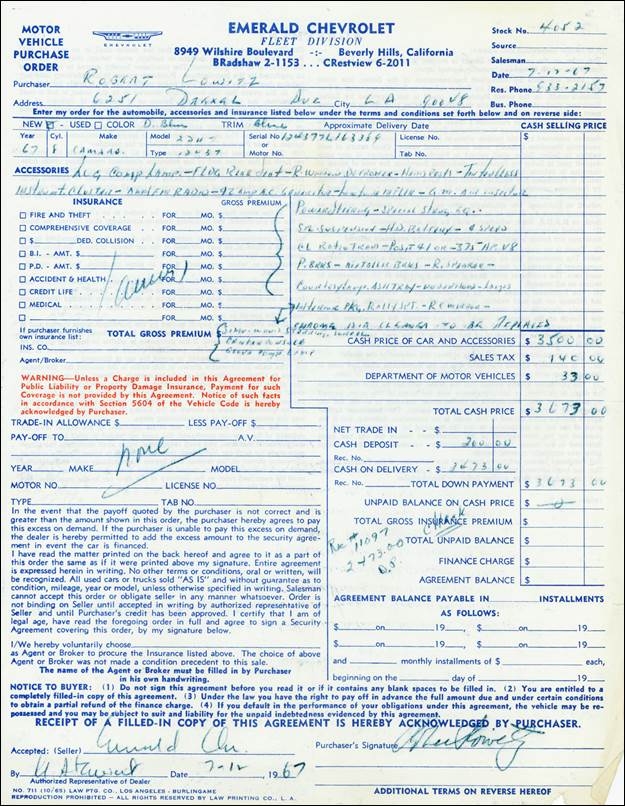 MOTOR VEHICLE PURCHASE ORDER
CHEVROLET
EMERALD CHEVROLET
FLEET DIVISION
8949 Wilshire Boulevard -:- Beverly Hills, California
BRadshaw 2-1153 . . . CRestview 6-2011
Stock No. 4052
Source
Salesman
Date 7-12-67
Purchaser Robert Lowitz Res. Phone 933-2157
Address 6251 Drexel Ave City L A 90048 Bus. Phone
Enter my order for the automobile, accessories and insurance listed below under the terms and conditions set forth below and on reverse side:
NEW - USED COLOR D. Blue TRIM Blue Approximate Delivery Date CASH SELLING PRICE
Year Cyl. Make Model Serial No or License No.
67 8 Camaro Type 12437 Motor No. Tab No.
ACCESSORIES
INSURANCE GROSS PREMIUM
FIRE AND THEFT FOR MO. $
COMPREHENSIVE COVERAGE FOR MO. $
$ DED. COLLISION FOR MO. $
B.I. - AMT. $ FOR MO. $
P.D. - AMT. $ FOR MO. $
ACCIDENT & HEALTH FOR MO. $
CREDIT LIFE FOR MO. $
MEDICAL FOR MO. $
FOR MO. $
Power Steering - Special Steering Eq.
Suspension - H.D. Battery - 4 Speed
Posi 4.10 - 375 H.P. V8
Metallic Brks - R. Speaker
Chrome Air Cleaner to be Replaced
If purchaser furnishes own insurance list: TOTAL GROSS PREMIUM $
INS. CO.
Agent/Broker
CASH PRICE OF CAR AND ACCESSORIES $ 3500 00
SALES TAX $ 140 00
DEPARTMENT OF MOTOR VEHICLES $ 33 00
TOTAL CASH PRICE $ 3673 00
WARNING—Unless a Charge is included in this Agreement for
Public Liability or Property Damage Insurance, Payment for such
Coverage is not provided by this Agreement. Notice of such facts
in accordance with Section 5604 of the Vehicle Code is hereby
acknowledged by Purchaser.
TRADE-IN ALLOWANCE $ LESS PAY-OFF $
PAY-OFF TO A.V.
none
YEAR MAKE MODEL
MOTOR NO. LICENSE NO.
TYPE TAB NO.
NET TRADE IN - - $
CASH DEPOSIT - - $ 200 00
Rec. No.
CASH ON DELIVERY - $ 3473 00
Rec. No. TOTAL DOWN PAYMENT $ 3673 00
UNPAID BALANCE ON CASH PRICE $ 0
TOTAL GROSS INSURANCE PREMIUM $
Rec # 11097
3473.00
D.S.
TOTAL UNPAID BALANCE $
FINANCE CHARGE $
AGREEMENT BALANCE $
In the event that the payoff quoted by the purchaser is not correct and is
greater than the amount shown in this order, the purchaser hereby agrees to pay
this excess on demand. If the purchaser is unable to pay this excess on demand,
the dealer is hereby permitted to add the excess amount to the security agree-
ment in event the car is financed.
I have read the matter printed on the back hereof and agree to it as a part of
this order the same as if it were printed above my signature. Entire agreement
is expressed herein in writing. No other terms or conditions, oral or written, will
be recognized. All used cars or trucks sold "AS IS" and without guarantee as to
condition, mileage, year or model, unless otherwise specified in writing. Salesman
cannot accept this order or obligate seller in any manner whatsoever. Order is
not binding on Seller until accepted in writing by authorized representative of
Seller and until Purchaser's credit has been approved. I certify that I am of
legal age, have read the foregoing order in full and agree to sign a Security
Agreement covering this order, by my signature below.
I/We hereby voluntarily choose
as Agent or Broker to procure the Insurance listed above. The choice of above
Agent or Broker was not made a condition precedent to this sale.
The name of the Agent or Broker must be filled in by Purchaser
in his own handwriting.
AGREEMENT BALANCE PAYABLE IN INSTALLMENTS
AS FOLLOWS:
$ on 19 , $ on 19
$ on 19 , $ on 19
and monthly installments of $ each,
beginning on the day of , 19
NOTICE TO BUYER: (1) Do not sign this agreement before you read it or if it contains any blank spaces to be filled in. (2) You are entitled to a
completely filled-in copy of this agreement. (3) Under the law you have the right to pay off in advance the full amount due and under certain conditions
to obtain a partial refund of the finance charge. (4) If you default in the performance of your obligations under this agreement, the vehicle may be re-
possessed and you may be subject to suit and liability for the unpaid indebtedness evidenced by this agreement.
RECEIPT OF A FILLED-IN COPY OF THIS AGREEMENT IS HEREBY ACKNOWLEDGED BY PURCHASER.
Accepted: (Seller) Emerald Chev. Purchaser's Signature
By Date 7-12 , 1967
Authorized Representative of Dealer
NO. 711 (10/65) LAW PTG. CO., LOS ANGELES - BURLINGAME
REPRODUCTION PROHIBITED - ALL RIGHTS RESERVED BY LAW PRINTING CO., L. A.
ADDITIONAL TERMS ON REVERSE HEREOF